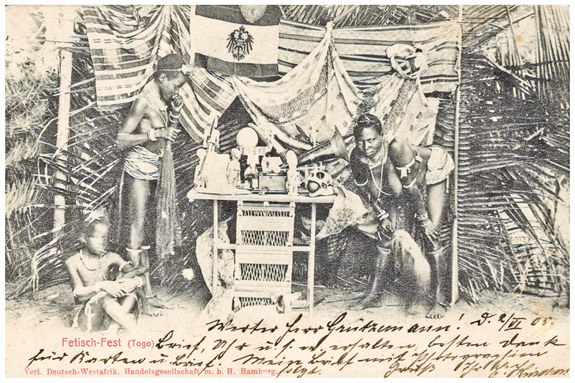 Fetisch-Fest (Togo)
Verl. Deutsch-Westafrik. Handelsgesellschaft m. b. H. Hamburg.
Werter Herr Grützmann! D. 2/VI 05
Brief, Uhr u. s. w. erhalten, besten Dank
für Karten u. Brief. Mein Brief mit Photographien
folgt. Gruß